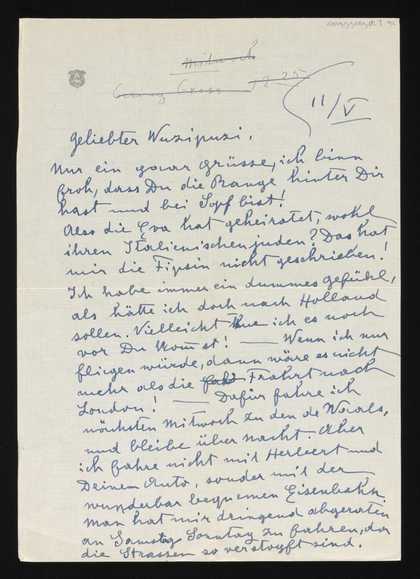 Mittwoch
1925
11/V
Geliebter Wuzipuzi,
Nur ein paar grüsse, ich binn
froh, dass Du die Range hinter Dir
hast und bei Topf bist!
Also die Eva hat geheiratet, wohl
ihren Italienischen juden? Das hat
mir die Fipsin nicht geschrieben!
Ich habe immer ein dummes gefühl,
als hätte ich doch nach Holland
sollen. Vielleicht thue ich es noch
vor Du komst! — Wenn ich nur
fliegen würde, dann wäre es nicht
mehr als die Fahrt nach
London! — Dafür fahre ich
nächsten Mitwoch zu den de
und bleibe über nacht. Aber
ich fahre nicht mit Herbert und
Deinem Auto, sonder mit der
wunderbar bequemen Eisenbahn.
Man hat mir dringend abgeraten
an Samstag Sonntag zu fahren, da
die Strassen so verstopft sind.